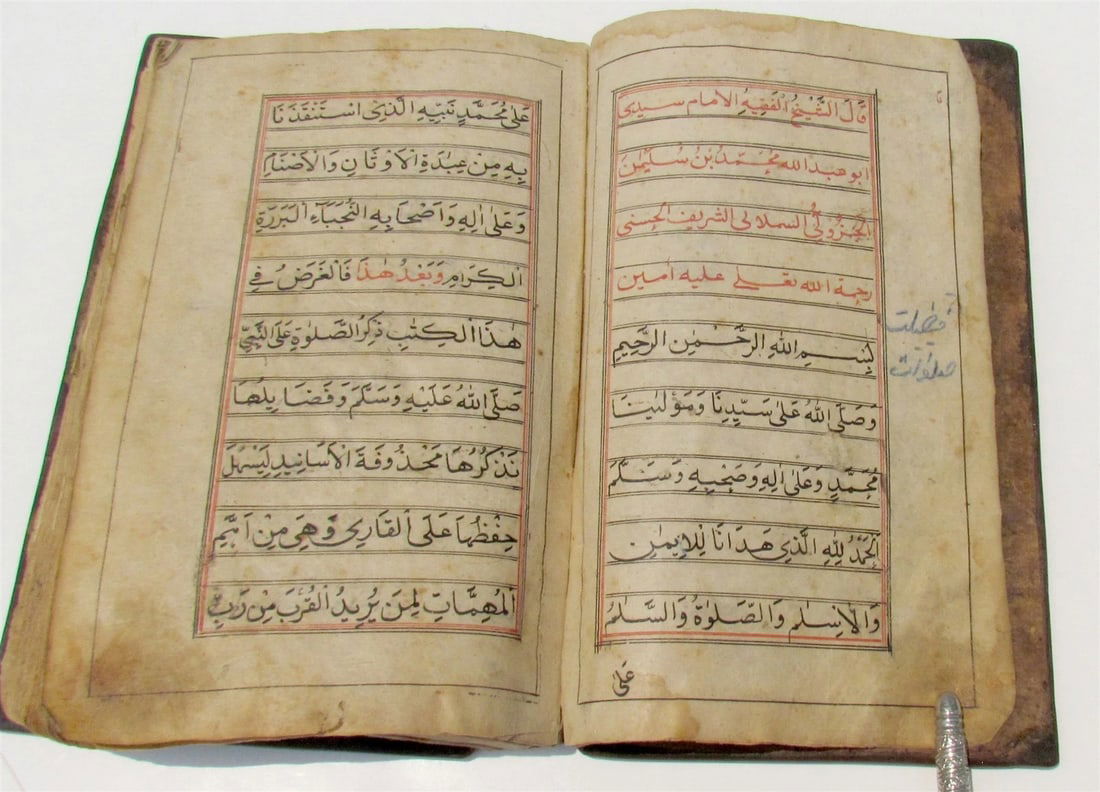 قَالَ الشَّيْخُ الْفَقِيهُ الْاِمَام سيدى
ابو عبد الله محَمَّد بْن سُلَيْمٰن
الْجَزُولِىُّ السملالى الشريف الحسنى
رحمة الله تعلى عليه امين
بِسْمِ اللهِ الرَّحْمٰنِ الرَّحِيمِ
وَصَلَّى اللهُ عَلىٰ سَيِّدِنَا وَمَوْلٰينَا
مُحَمَّدٍ وَعَلىٰ اٰلِهِ وَصَحْبِهِ وَسَلَّمَ
اَلْحَمْدُ لِلّٰهِ الَّذِى هَدَانَا لِلْاِيمٰنِ
وَالْاِسْلٰمِ وَالصَّلٰوةُ وَالسَّلٰمُ
عَلىٰ
صلوات
عَلىٰ مُحَمَّدٍ نَبِيِّهِ الَّذِى اسْتَنْقَذَنَا
بِهِ مِنْ عِبَادَةِ الْاَوْثَانِ وَالْاَصْنَامِ
وَعَلىٰ اٰلِهِ وَاَصْحَابِهِ النُّجَبَآءِ الْبَرَرَةِ
الْكِرَامِ وَبَعْدُ هٰذَا فَالْغَرَضُ فِى
هٰذَا الْكِتٰبِ ذِكْرُ الصَّلٰوةِ عَلَى النَّبِىِّ
صَلَّى اللهُ عَلَيْهِ وَسَلَّمَ وَفَضَايِلُهَا
نَذْكُرُهَا مَحْذُوفَةَ الْاَسَانِيدِ لِيَسْهُلَ
حِفْظُهَا عَلَى الْقَارِى وَهِىَ مِنْ اَهَمِّ
الْمُهِمَّاتِ لِمَنْ يُرِيدُ الْقُرْبَ مِنْ رَبِّ